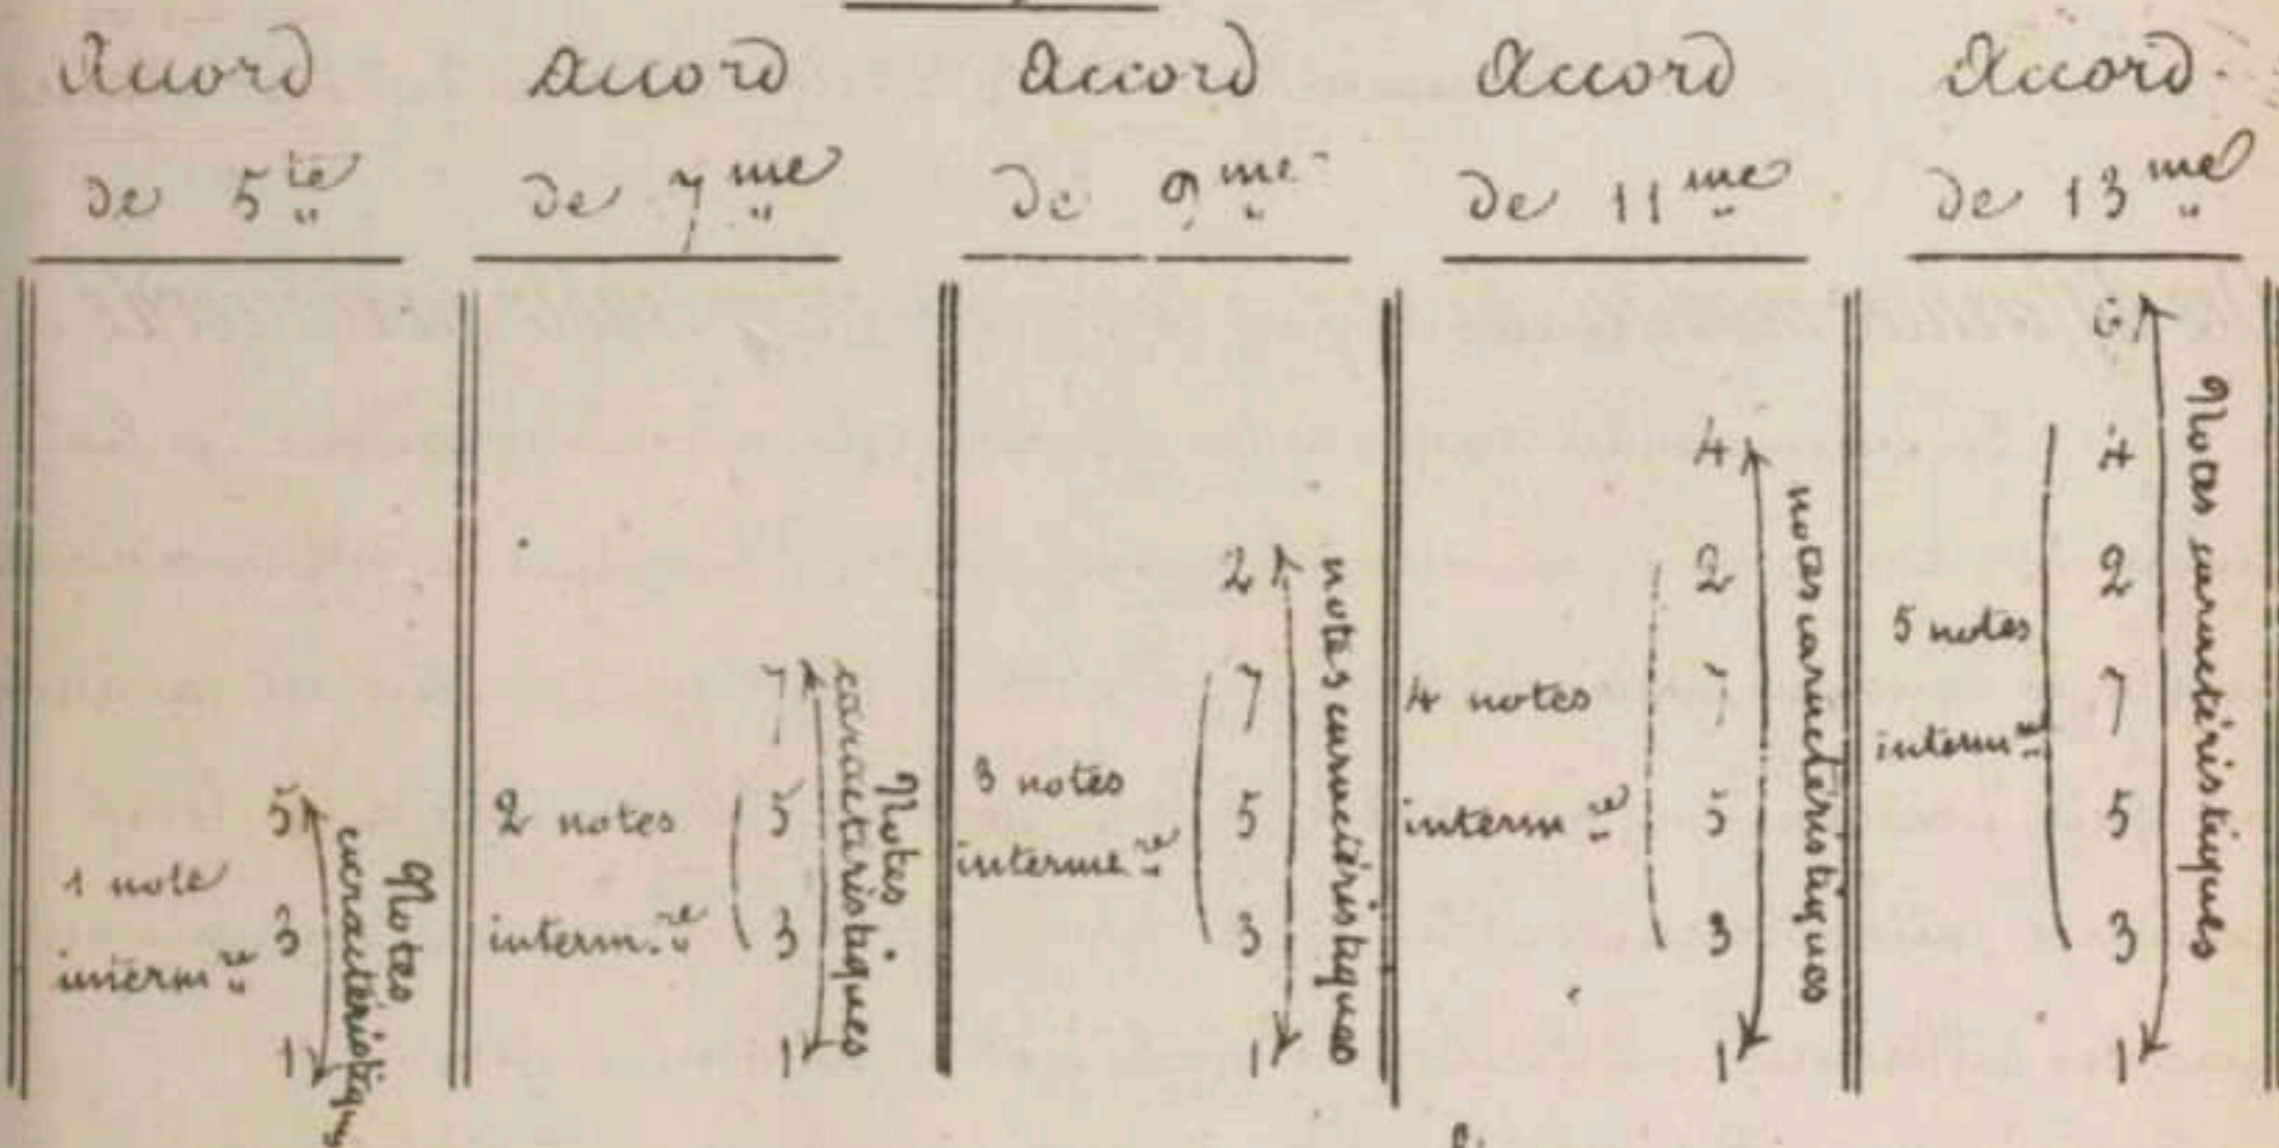 Accord
de 5te
1 note
interm.re
5
3
1
Notes
caractéristiques
Accord
de 7me
2 notes
interm.re
7
5
3
1
Notes
caractéristiques
Accord
de 9me
3 notes
interme.re
2
7
5
3
1
notes caractéristiques
Accord
de 11me
4 notes
interm.re
4
2
7
5
3
1
notes caractéristiques
Accord
de 13me
5 notes
interm.re
6
4
2
7
5
3
1
Notes caractéristiques